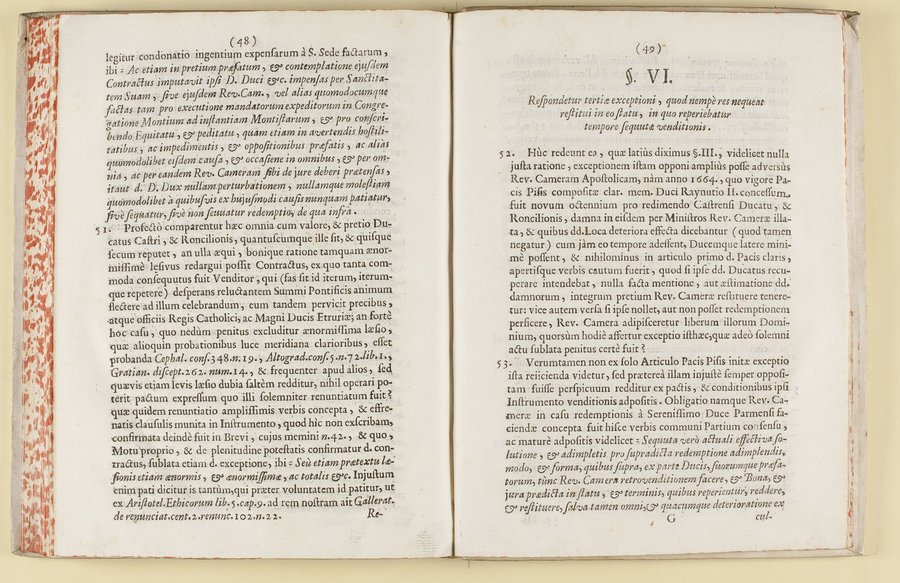 (48)
legitur condonatio ingentium expensarum à S. Sede factarum,
ibi = Ac etiam in pretium præfatum, & contemplatione ejusdem
Contractus imputavit ipsi D. Duci &c. impensas per Sanctita-
tem Suam, sive ejusdem Rev. Cam., vel alias quomodocumque
factas tam pro executione mandatorum expeditorum in Congre-
gatione Montium ad instantiam Montistarum, & pro conscri-
bendo Equitatu, & peditatu, quam etiam in avertendis hostili-
tatibus, ac impedimentis, & oppositionibus præfatis, ac alias
quomodolibet eisdem causa, & occasione in omnibus, & per om-
nia, ac per eandem Rev. Cameram sibi de jure deberi prætensas,
itaut d. D. Dux nullam perturbationem, nullamque molestiam
quomodolibet à quibusvis ex hujusmodi causis nunquam patiatur,
sivè sequatur, sivè non sequatur redemptio, de qua infra.
51. Profectò comparentur hæc omnia cum valore, & pretio Du-
catus Castri, & Roncilionis, quantuscumque ille sit, & quisque
secum reputet, an ulla æqui, bonique ratione tamquam ænor-
missimè lesivus redargui possit Contractus, ex quo tanta com-
moda consequutus fuit Venditor, qui (fas sit id iterum, iterum-
que repetere) desperans reluctantem Summi Pontificis animum
flectere ad illum celebrandum, eum tandem pervicit precibus,
atque officiis Regis Catholici, ac Magni Ducis Etruriæ; an fortè
hoc casu, quo nedùm penitus excluditur ænormissima læsio,
quæ alioquin probationibus luce meridiana clarioribus, esset
probanda Cephal. cons. 348. n. 19., Altograd. cons. 5. n. 72. lib. 1.,
Gratian. discept. 262. num. 14., & frequenter apud alios, sed
quævis etiam levis læsio dubia saltèm redditur, nihil operari po-
terit pactum expressum quo illi solemniter renuntiatum fuit?
quæ quidem renuntiatio amplissimis verbis concepta, & effre-
natis clausulis munita in Instrumento, quod hìc non exscribam,
confirmata deindè fuit in Brevi, cujus memini n. 42., & quo,
Motu proprio, & de plenitudine potestatis confirmatur d. con-
tractus, sublata etiam d. exceptione, ibi = Seù etiam prætextu læ-
sionis etiam ænormis, & ænormissimæ, ac totalis &c. Injustum
enim pati dicitur is tantùm, qui præter voluntatem id patitur, ut
ex Aristotel. Ethicorum lib. 5. cap. 9. ad rem nostram ait Gallerat.
de renunciat. cent. 2. renunc. 102. n. 22.
Re-
(49)
§. VI.
Respondetur tertiæ exceptioni, quod nempè res nequeat
restitui in eo statu, in quo reperiebatur
tempore sequutæ venditionis.
52. Hùc redeunt ea, quæ latiùs diximus §. III., videlicet nulla
justa ratione, exceptionem istam opponi ampliùs posse adversùs
Rev. Cameram Apostolicam, nàm anno 1664., quo vigore Pa-
cis Pisis compositæ clar. mem. Duci Raynutio II. concessum
fuit novum octennium pro redimendo Castrensi Ducatu, &
Roncilionis, damna in eisdem per Ministros Rev. Cameræ illa-
ta, & quibus dd. Loca deteriora effecta dicebantur (quod tamen
negatur) cum jàm eo tempore adessent, Ducemque latere mini-
mè possent, & nihilominus in articulo primo d. Pacis claris,
apertisque verbis cautum fuerit, quod si ipse dd. Ducatus recu-
perare intendebat, nulla facta mentione, aut æstimatione dd.
damnorum, integrum pretium Rev. Cameræ restituere tenere-
tur: vice autem versa si ipse nollet, aut non posset redemptionem
perficere, Rev. Camera adipisceretur liberum illorum Domi-
nium, quorsùm hodiè affertur exceptio isthæc, quæ adeò solemni
actu sublata penitus certè fuit?
53. Verumtamen non ex solo Articulo Pacis Pisis initæ exceptio
ista reiicienda videtur, sed prætereà illam injustè semper opposi-
tam fuisse perspicuum redditur ex pactis, & conditionibus ipsi
Instrumento venditionis adpositis. Obligatio namque Rev. Ca-
meræ in casu redemptionis à Serenissimo Duce Parmensi fa-
ciendæ concepta fuit hisce verbis communi Partium consensu,
ac maturè adpositis videlicet = Sequuta verò actuali effectiva so-
lutione, & adimpletis pro supradicta redemptione adimplendis,
modo, & forma, quibus supra, ex parte Ducis, suorumque præfa-
torum, tùnc Rev. Camera retrovenditionem facere, & Bona, &
jura prædicta in statu, & terminis, quibus reperientur, reddere,
& restituere, salva tamen omni, & quacumque deterioratione ex
G
cul-